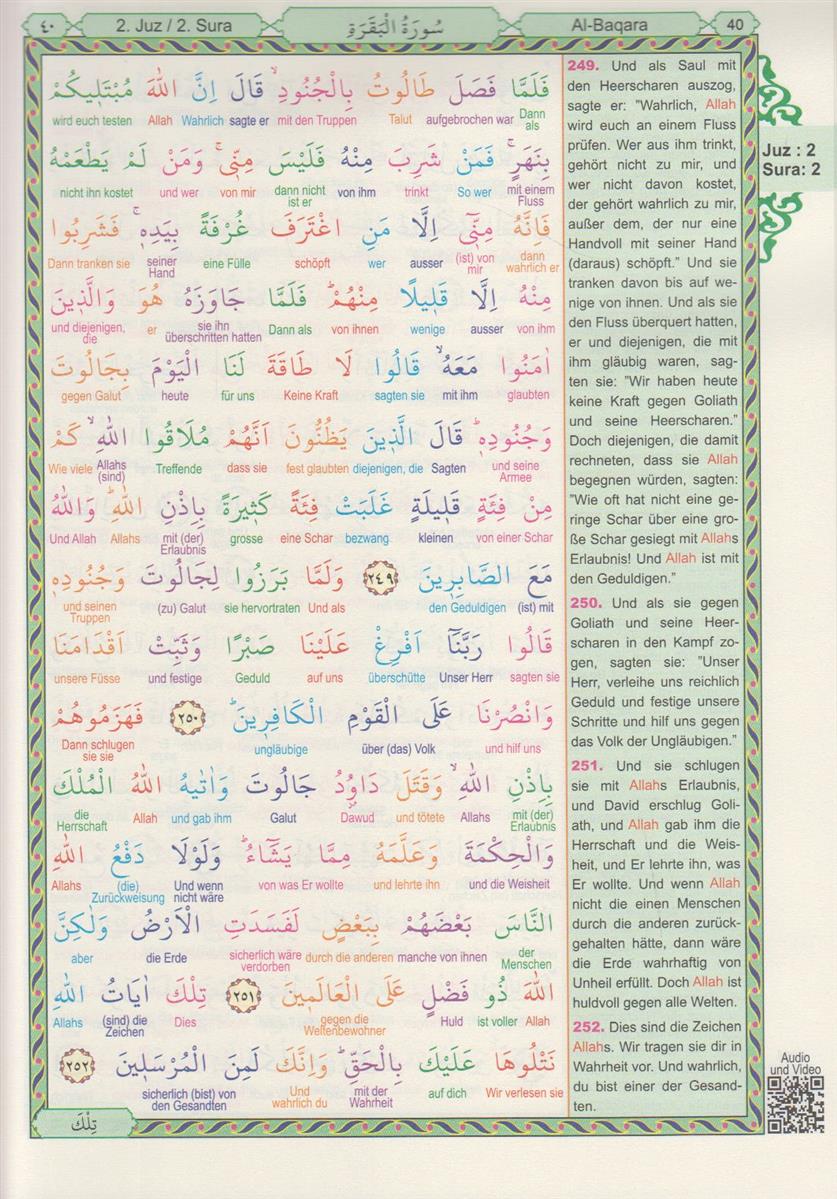 ٤٠
2. Juz / 2. Sura
سُورَةُ الْبَقَرَةِ
Al-Baqara
40
فَلَمَّا فَصَلَ طَالُوتُ بِالْجُنُودِۙ قَالَ اِنَّ اللّٰهَ مُبْتَلٖيكُمْ
wird euch testen Allah Wahrlich sagte er mit den Truppen Talut aufgebrochen war Dann als
بِنَهَرٍۚ فَمَنْ شَرِبَ مِنْهُ فَلَيْسَ مِنّٖيۚ وَمَنْ لَمْ يَطْعَمْهُ
nicht ihn kostet und wer von mir dann nicht ist er von ihm trinkt So wer mit einem Fluss
فَاِنَّهُ مِنّٖٓي اِلَّا مَنِ اغْتَرَفَ غُرْفَةً بِيَدِهٖۚ فَشَرِبُوا
Dann tranken sie seiner Hand eine Fülle schöpft wer ausser (ist) von mir dann wahrlich er
مِنْهُ اِلَّا قَلٖيلًا مِنْهُمْۜ فَلَمَّا جَاوَزَهُ هُوَ وَالَّذٖينَ
und diejenigen, die er sie ihn überschritten hatten Dann als von ihnen wenige ausser von ihm
اٰمَنُوا مَعَهُۙ قَالُوا لَا طَاقَةَ لَنَا الْيَوْمَ بِجَالُوتَ
gegen Galut heute für uns Keine Kraft sagten sie mit ihm glaubten
وَجُنُودِهٖۜ قَالَ الَّذٖينَ يَظُنُّونَ اَنَّهُمْ مُلَاقُوا اللّٰهِۙ كَمْ
Wie viele Allahs (sind) Treffende dass sie fest glaubten diejenigen, die Sagten und seine Armee
مِنْ فِئَةٍ قَلٖيلَةٍ غَلَبَتْ فِئَةً كَثٖيرَةً بِاِذْنِ اللّٰهِۜ وَاللّٰهُ
Und Allah Allahs mit (der) Erlaubnis grosse eine Schar bezwang kleinen von einer Schar
مَعَ الصَّابِرٖينَ ﴿٢٤٩﴾ وَلَمَّا بَرَزُوا لِجَالُوتَ وَجُنُودِهٖ
und seinen Truppen (zu) Galut sie hervortraten Und als den Geduldigen (ist) mit
قَالُوا رَبَّنَٓا اَفْرِغْ عَلَيْنَا صَبْرًا وَثَبِّتْ اَقْدَامَنَا
unsere Füsse und festige Geduld auf uns überschütte Unser Herr sagten sie
وَانْصُرْنَا عَلَى الْقَوْمِ الْكَافِرٖينَۜ ﴿٢٥٠﴾ فَهَزَمُوهُمْ
Dann schlugen sie sie ungläubige über (das) Volk und hilf uns
بِاِذْنِ اللّٰهِۙ وَقَتَلَ دَاوُ۫دُ جَالُوتَ وَاٰتٰيهُ اللّٰهُ الْمُلْكَ
die Herrschaft Allah und gab ihm Galut Dawud und tötete Allahs mit (der) Erlaubnis
وَالْحِكْمَةَ وَعَلَّمَهُ مِمَّا يَشَٓاءُۜ وَلَوْلَا دَفْعُ اللّٰهِ
Allahs (die) Zurückweisung Und wenn nicht wäre von was Er wollte und lehrte ihn und die Weisheit
النَّاسَ بَعْضَهُمْ بِبَعْضٍ لَفَسَدَتِ الْاَرْضُ وَلٰكِنَّ
aber die Erde sicherlich wäre verdorben durch die anderen manche von ihnen der Menschen
اللّٰهَ ذُو فَضْلٍ عَلَى الْعَالَمٖينَ ﴿٢٥١﴾ تِلْكَ اٰيَاتُ اللّٰهِ
Allahs (sind) die Zeichen Dies gegen die Weltenbewohner Huld ist voller Allah
نَتْلُوهَا عَلَيْكَ بِالْحَقِّۜ وَاِنَّكَ لَمِنَ الْمُرْسَلٖينَ ﴿٢٥٢﴾
sicherlich (bist) von den Gesandten Und wahrlich du mit der Wahrheit auf dich Wir verlesen sie
تِلْكَ
249. Und als Saul mit
den Heerscharen auszog,
sagte er: "Wahrlich, Allah
wird euch an einem Fluss
prüfen. Wer aus ihm trinkt,
gehört nicht zu mir, und
wer nicht davon kostet,
der gehört wahrlich zu mir,
außer dem, der nur eine
Handvoll mit seiner Hand
(daraus) schöpft." Und sie
tranken davon bis auf we-
nige von ihnen. Und als sie
den Fluss überquert hatten,
er und diejenigen, die mit
ihm gläubig waren, sag-
ten sie: "Wir haben heute
keine Kraft gegen Goliath
und seine Heerscharen."
Doch diejenigen, die damit
rechneten, dass sie Allah
begegnen würden, sagten:
"Wie oft hat nicht eine ge-
ringe Schar über eine gro-
ße Schar gesiegt mit Allahs
Erlaubnis! Und Allah ist mit
den Geduldigen."
250. Und als sie gegen
Goliath und seine Heer-
scharen in den Kampf zo-
gen, sagten sie: "Unser
Herr, verleihe uns reichlich
Geduld und festige unsere
Schritte und hilf uns gegen
das Volk der Ungläubigen."
251. Und sie schlugen
sie mit Allahs Erlaubnis,
und David erschlug Goli-
ath, und Allah gab ihm die
Herrschaft und die Weis-
heit, und Er lehrte ihn, was
Er wollte. Und wenn Allah
nicht die einen Menschen
durch die anderen zurück-
gehalten hätte, dann wäre
die Erde wahrhaftig von
Unheil erfüllt. Doch Allah ist
huldvoll gegen alle Welten.
252. Dies sind die Zeichen
Allahs. Wir tragen sie dir in
Wahrheit vor. Und wahrlich,
du bist einer der Gesand-
ten.
Juz : 2
Sura: 2
Audio
und Video